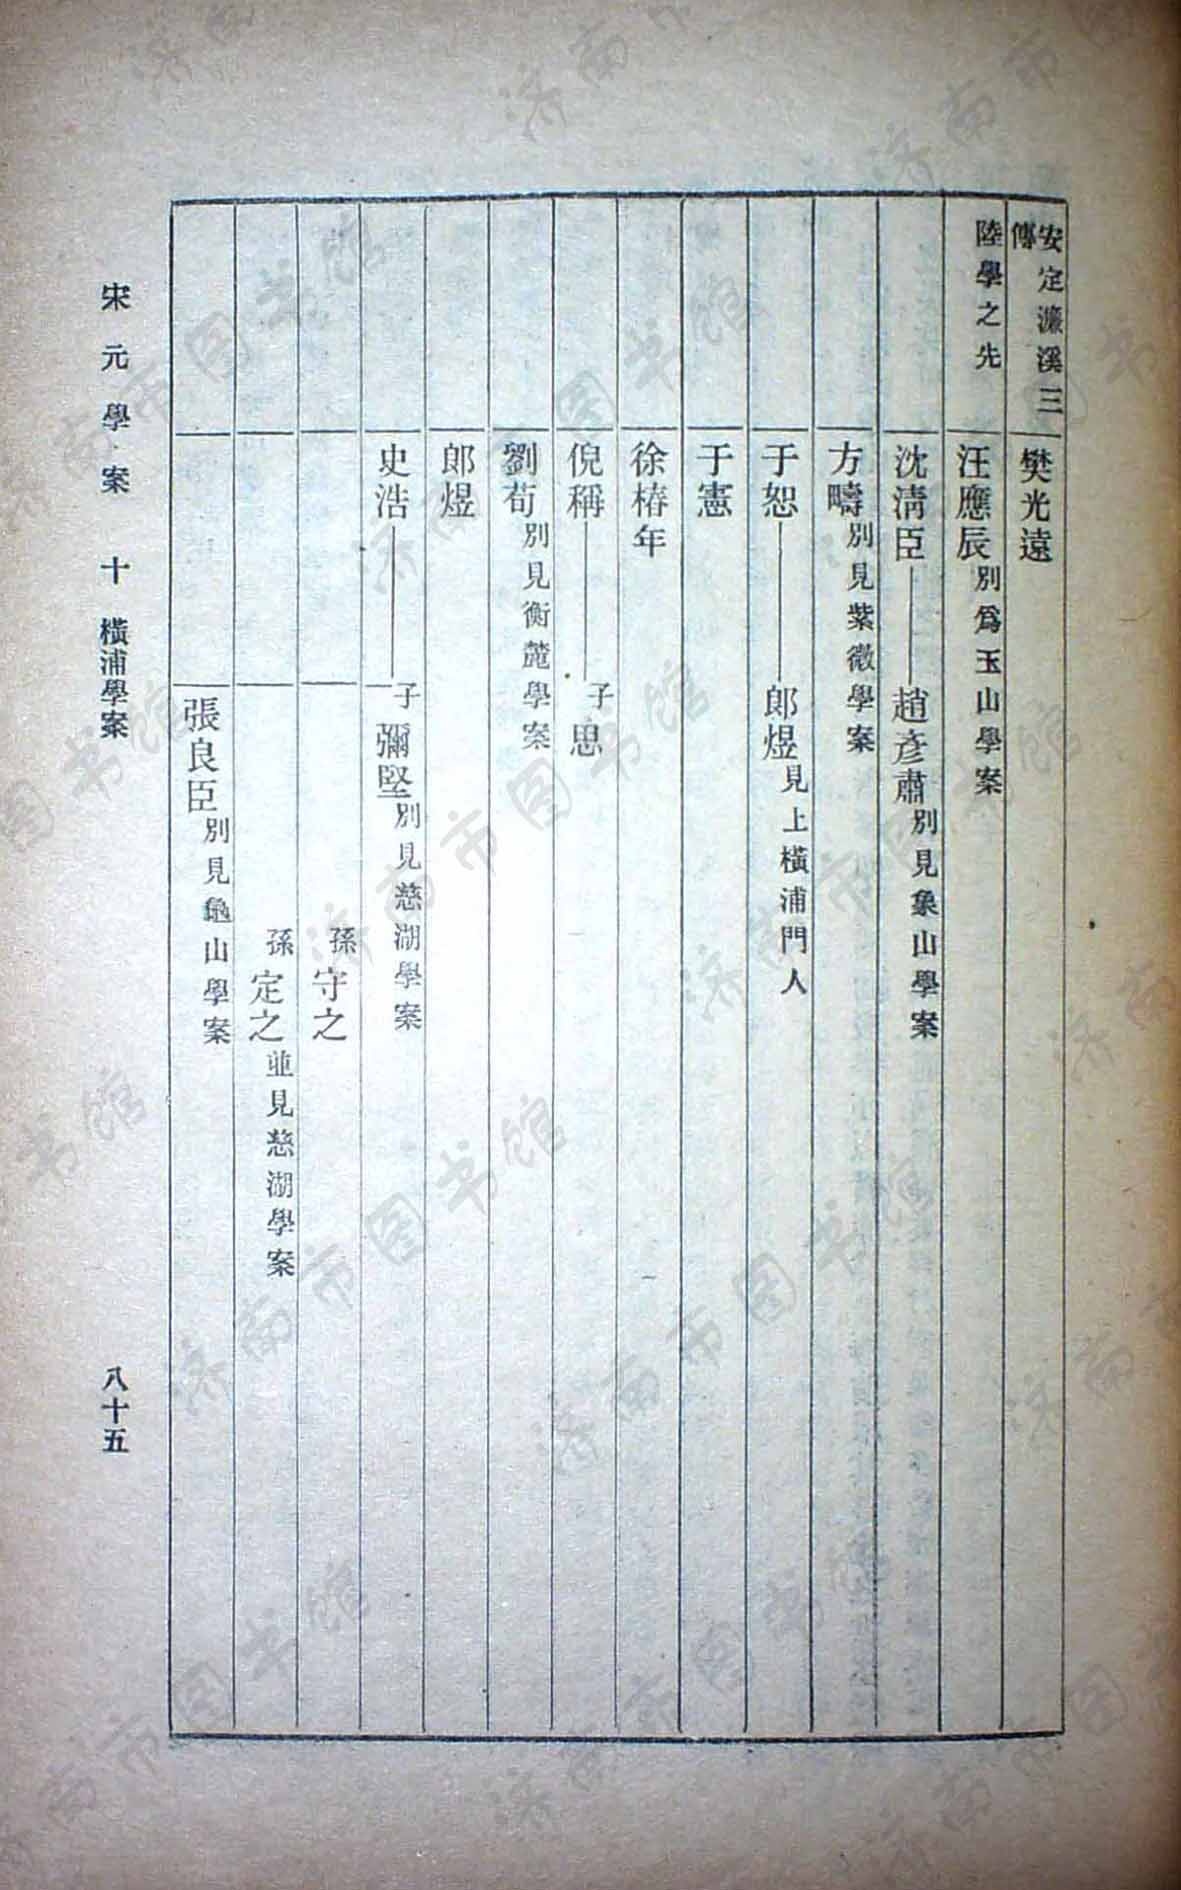 安定濂溪三傳 樊光遠
陸學之先 汪應辰別爲玉山學案
沈清臣 趙彥肅別見象山學案
方疇別見紫微學案
于恕 郎煜見上橫浦門人
于憲
徐椿年
倪稱 子思
劉荀別見衡麓學案
郎煜
史浩 子彌堅別見慈湖學案
孫守之
孫定之並見慈湖學案
張良臣別見龜山學案
宋元學案 十 橫浦學案 八十五
济南市图书馆